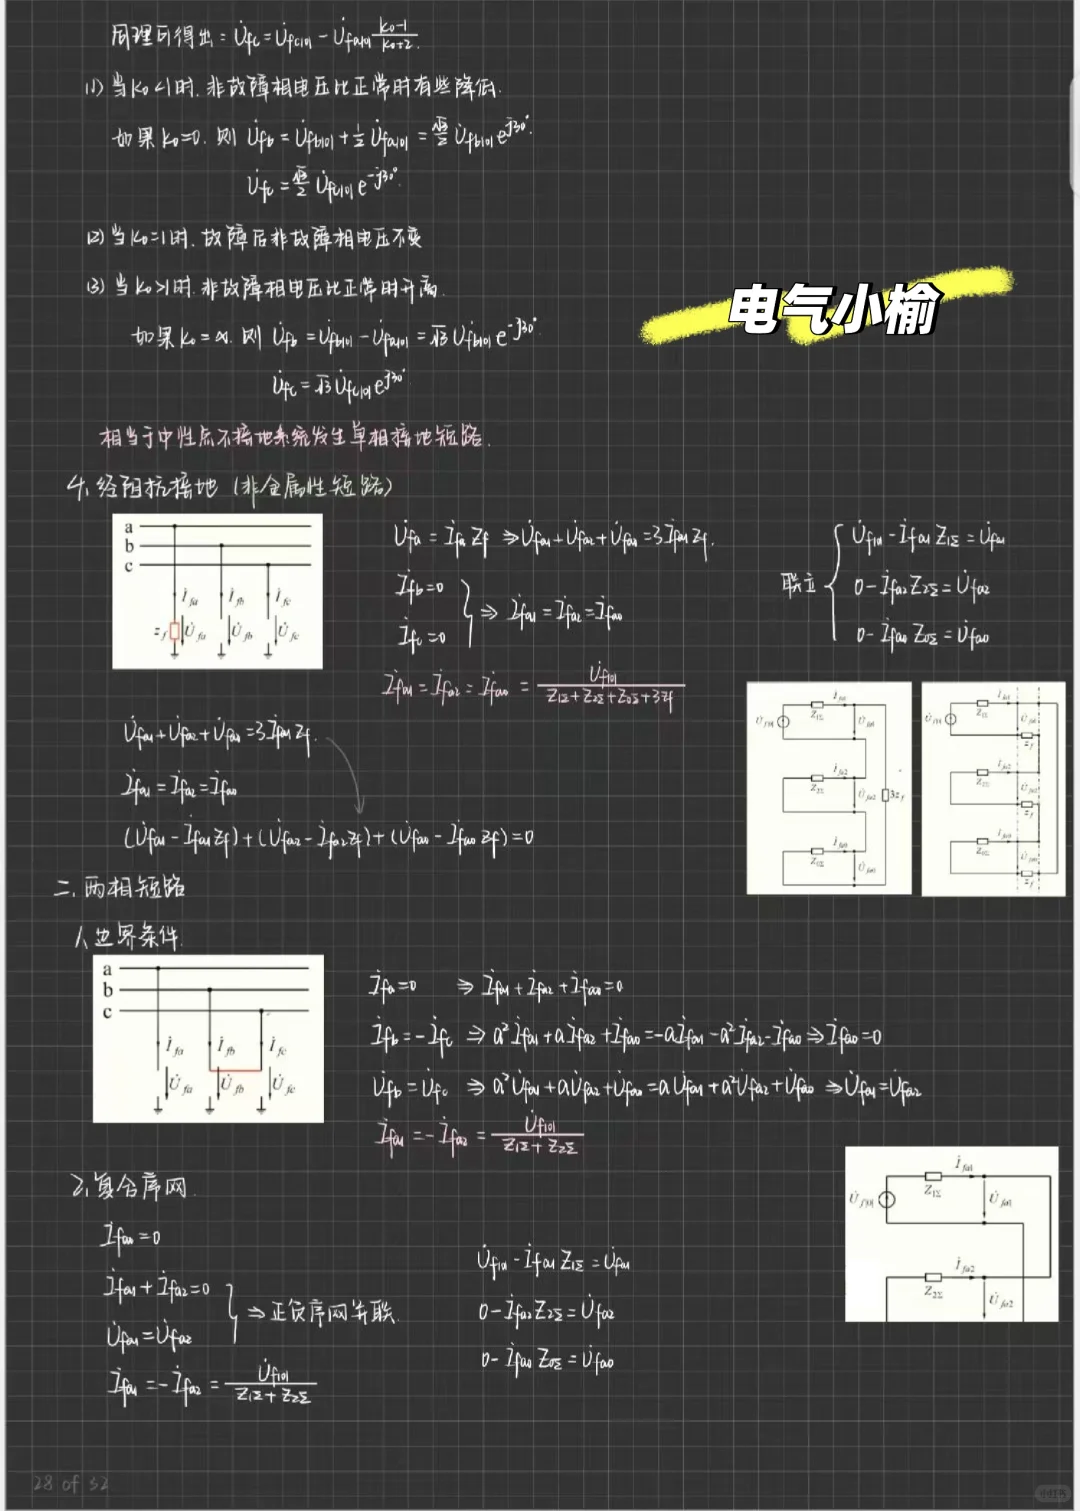 同理可得出: U̇fc = U̇fc|0| − U̇fa|0| (k₀−1)/(k₀+2)
(1) 当k₀<1时, 非故障相电压比正常时有些降低.
如果k₀=0. 则 U̇fb = U̇fb|0| + ½ U̇fa|0| = √3/2 U̇fb|0| e^{j30°}.
U̇fc = √3/2 U̇fc|0| e^{-j30°}.
(2) 当k₀=1时. 故障后非故障相电压不变
(3) 当k₀>1时. 非故障相电压比正常时升高.
电气小榆
如果k₀=∞. 则 U̇fb = U̇fb|0| − U̇fa|0| = √3 U̇fb|0| e^{-j30°}.
U̇fc = √3 U̇fc|0| e^{j30°}
相当于中性点不接地系统发生单相接地短路.
4. 经阻抗接地 (非金属性短路)
a
b
c
İfa İfb İfc
zf U̇fa U̇fb U̇fc
U̇fa = İfa Zf ⇒ U̇fa1 + U̇fa2 + U̇fa0 = 3İfa1 Zf.
İfb=0
İfc=0
⇒ İfa1 = İfa2 = İfa0
İfa1 = İfa2 = İfa0 = U̇f|0| / (Z1Σ+Z2Σ+Z0Σ+3Zf)
联立
U̇f|0| − İfa1 Z1Σ = U̇fa1
0 − İfa2 Z2Σ = U̇fa2
0 − İfa0 Z0Σ = U̇fa0
U̇f|0| Z1Σ İfa1 U̇fa1
Z2Σ İfa2 U̇fa2 3zf
Z0Σ İfa0 U̇fa0
U̇f|0| Z1Σ İfa1 U̇fa1 zf
Z2Σ İfa2 U̇fa2 zf
Z0Σ İfa0 U̇fa0 zf
U̇fa1 + U̇fa2 + U̇fa0 = 3İfa1 Zf.
İfa1 = İfa2 = İfa0
(U̇fa1 − İfa1 Zf) + (U̇fa2 − İfa2 Zf) + (U̇fa0 − İfa0 Zf) = 0
二. 两相短路
1. 边界条件.
a
b
c
İfa İfb İfc
U̇fa U̇fb U̇fc
İfa=0 ⇒ İfa1 + İfa2 + İfa0 = 0
İfb = −İfc ⇒ a²İfa1 + aİfa2 + İfa0 = −aİfa1 − a²İfa2 − İfa0 ⇒ İfa0 = 0
U̇fb = U̇fc ⇒ a²U̇fa1 + aU̇fa2 + U̇fa0 = aU̇fa1 + a²U̇fa2 + U̇fa0 ⇒ U̇fa1 = U̇fa2
İfa1 = −İfa2 = U̇f|0| / (Z1Σ+Z2Σ)
2. 复合序网.
İfa0 = 0
İfa1 + İfa2 = 0
U̇fa1 = U̇fa2
⇒ 正负序网并联.
İfa1 = −İfa2 = U̇f|0| / (Z1Σ+Z2Σ)
U̇f|0| − İfa1 Z1Σ = U̇fa1
0 − İfa2 Z2Σ = U̇fa2
0 − İfa0 Z0Σ = U̇fa0
U̇f|0| Z1Σ İfa1 U̇fa1
Z2Σ İfa2 U̇fa2
28 of 52
小红书